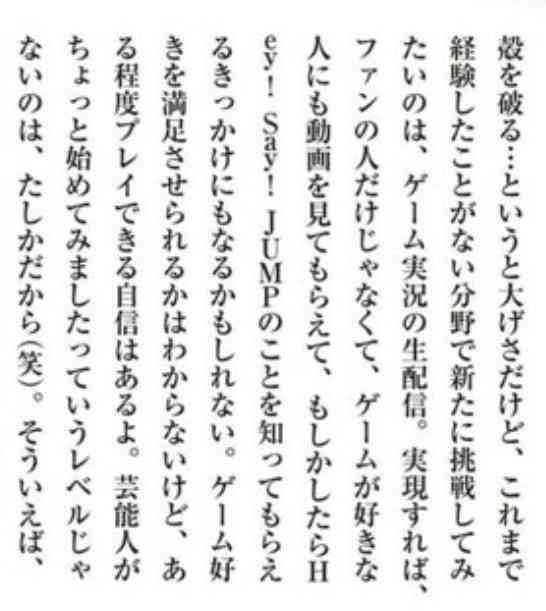 殻を破る…というと大げさだけど、これまで
経験したことがない分野で新たに挑戦してみ
たいのは、ゲーム実況の生配信。実現すれば、
ファンの人だけじゃなくて、ゲームが好きな
人にも動画を見てもらえて、もしかしたらH
ey! Say! JUMPのことを知ってもらえ
るきっかけにもなるかもしれない。ゲーム好
きを満足させられるかはわからないけど、あ
る程度プレイできる自信はあるよ。芸能人が
ちょっと始めてみましたっていうレベルじゃ
ないのは、たしかだから(笑)。そういえば、